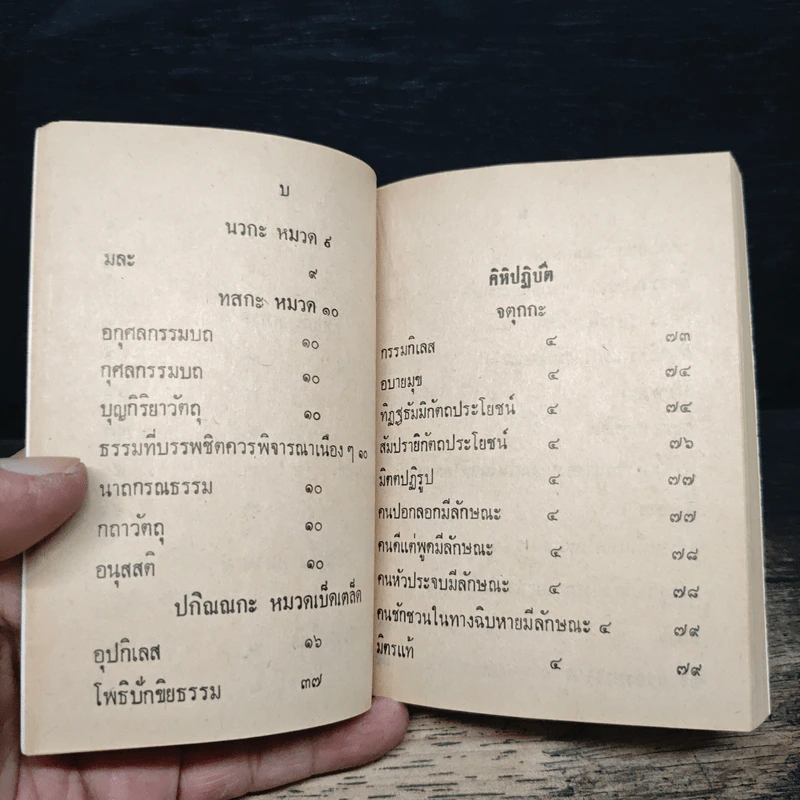 บ
นวกะ หมวด ๙
มละ ๙
ทสกะ หมวด ๑๐
อกุศลกรรมบถ ๑๐
กุศลกรรมบถ ๑๐
บุญกิริยาวัตถุ ๑๐
ธรรมที่บรรพชิตควรพิจารณาเนือง ๆ ๑๐
นาถกรณธรรม ๑๐
กถาวัตถุ ๑๐
อนุสสติ ๑๐
ปกิณณกะ หมวดเบ็ดเตล็ด
อุปกิเลส ๑๖
โพธิปักขิยธรรม ๓๗
คิหิปฏิบัติ
จตุกกะ
กรรมกิเลส ๔ ๗๓
อบายมุข ๔ ๗๔
ทิฏฐธัมมิกัตถประโยชน์ ๔ ๗๔
สัมปรายิกัตถประโยชน์ ๔ ๗๖
มิตตปฏิรูป ๔ ๗๗
คนปอกลอกมีลักษณะ ๔ ๗๗
คนดีแต่พูดมีลักษณะ ๔ ๗๘
คนหัวประจบมีลักษณะ ๔ ๗๘
คนชักชวนในทางฉิบหายมีลักษณะ ๔ ๗๙
มิตรแท้ ๔ ๗๙